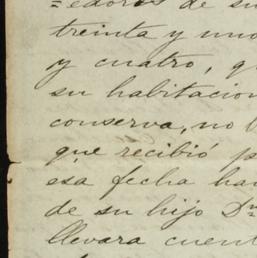 =edores de su
treinta y uno
y cuatro, q
su habitacion
conserva, no
que recibió p
esa fecha ha
de su hijo Dn
llevara cuent